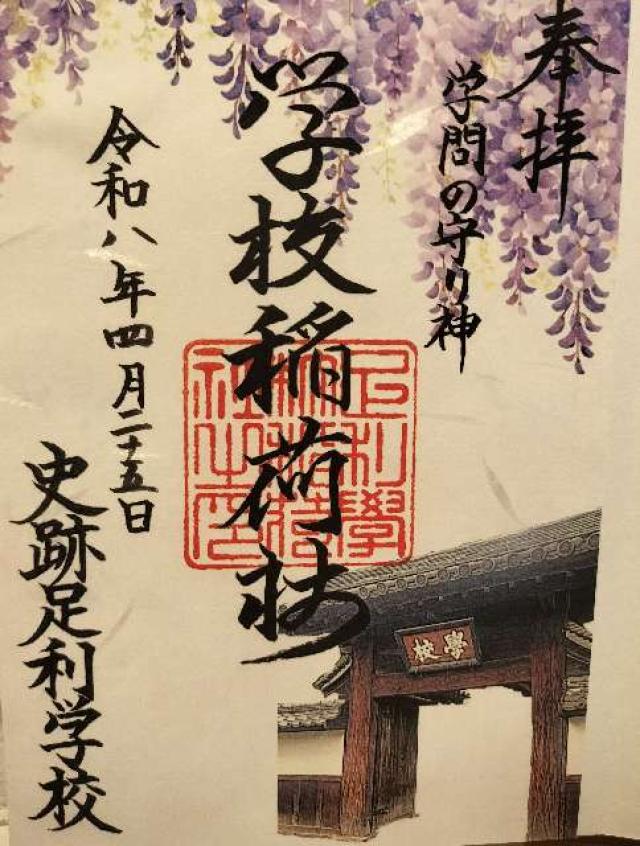 奉拝
学問の守り神
学校稲荷社
令和八年四月二十五日
史跡足利学校
學校